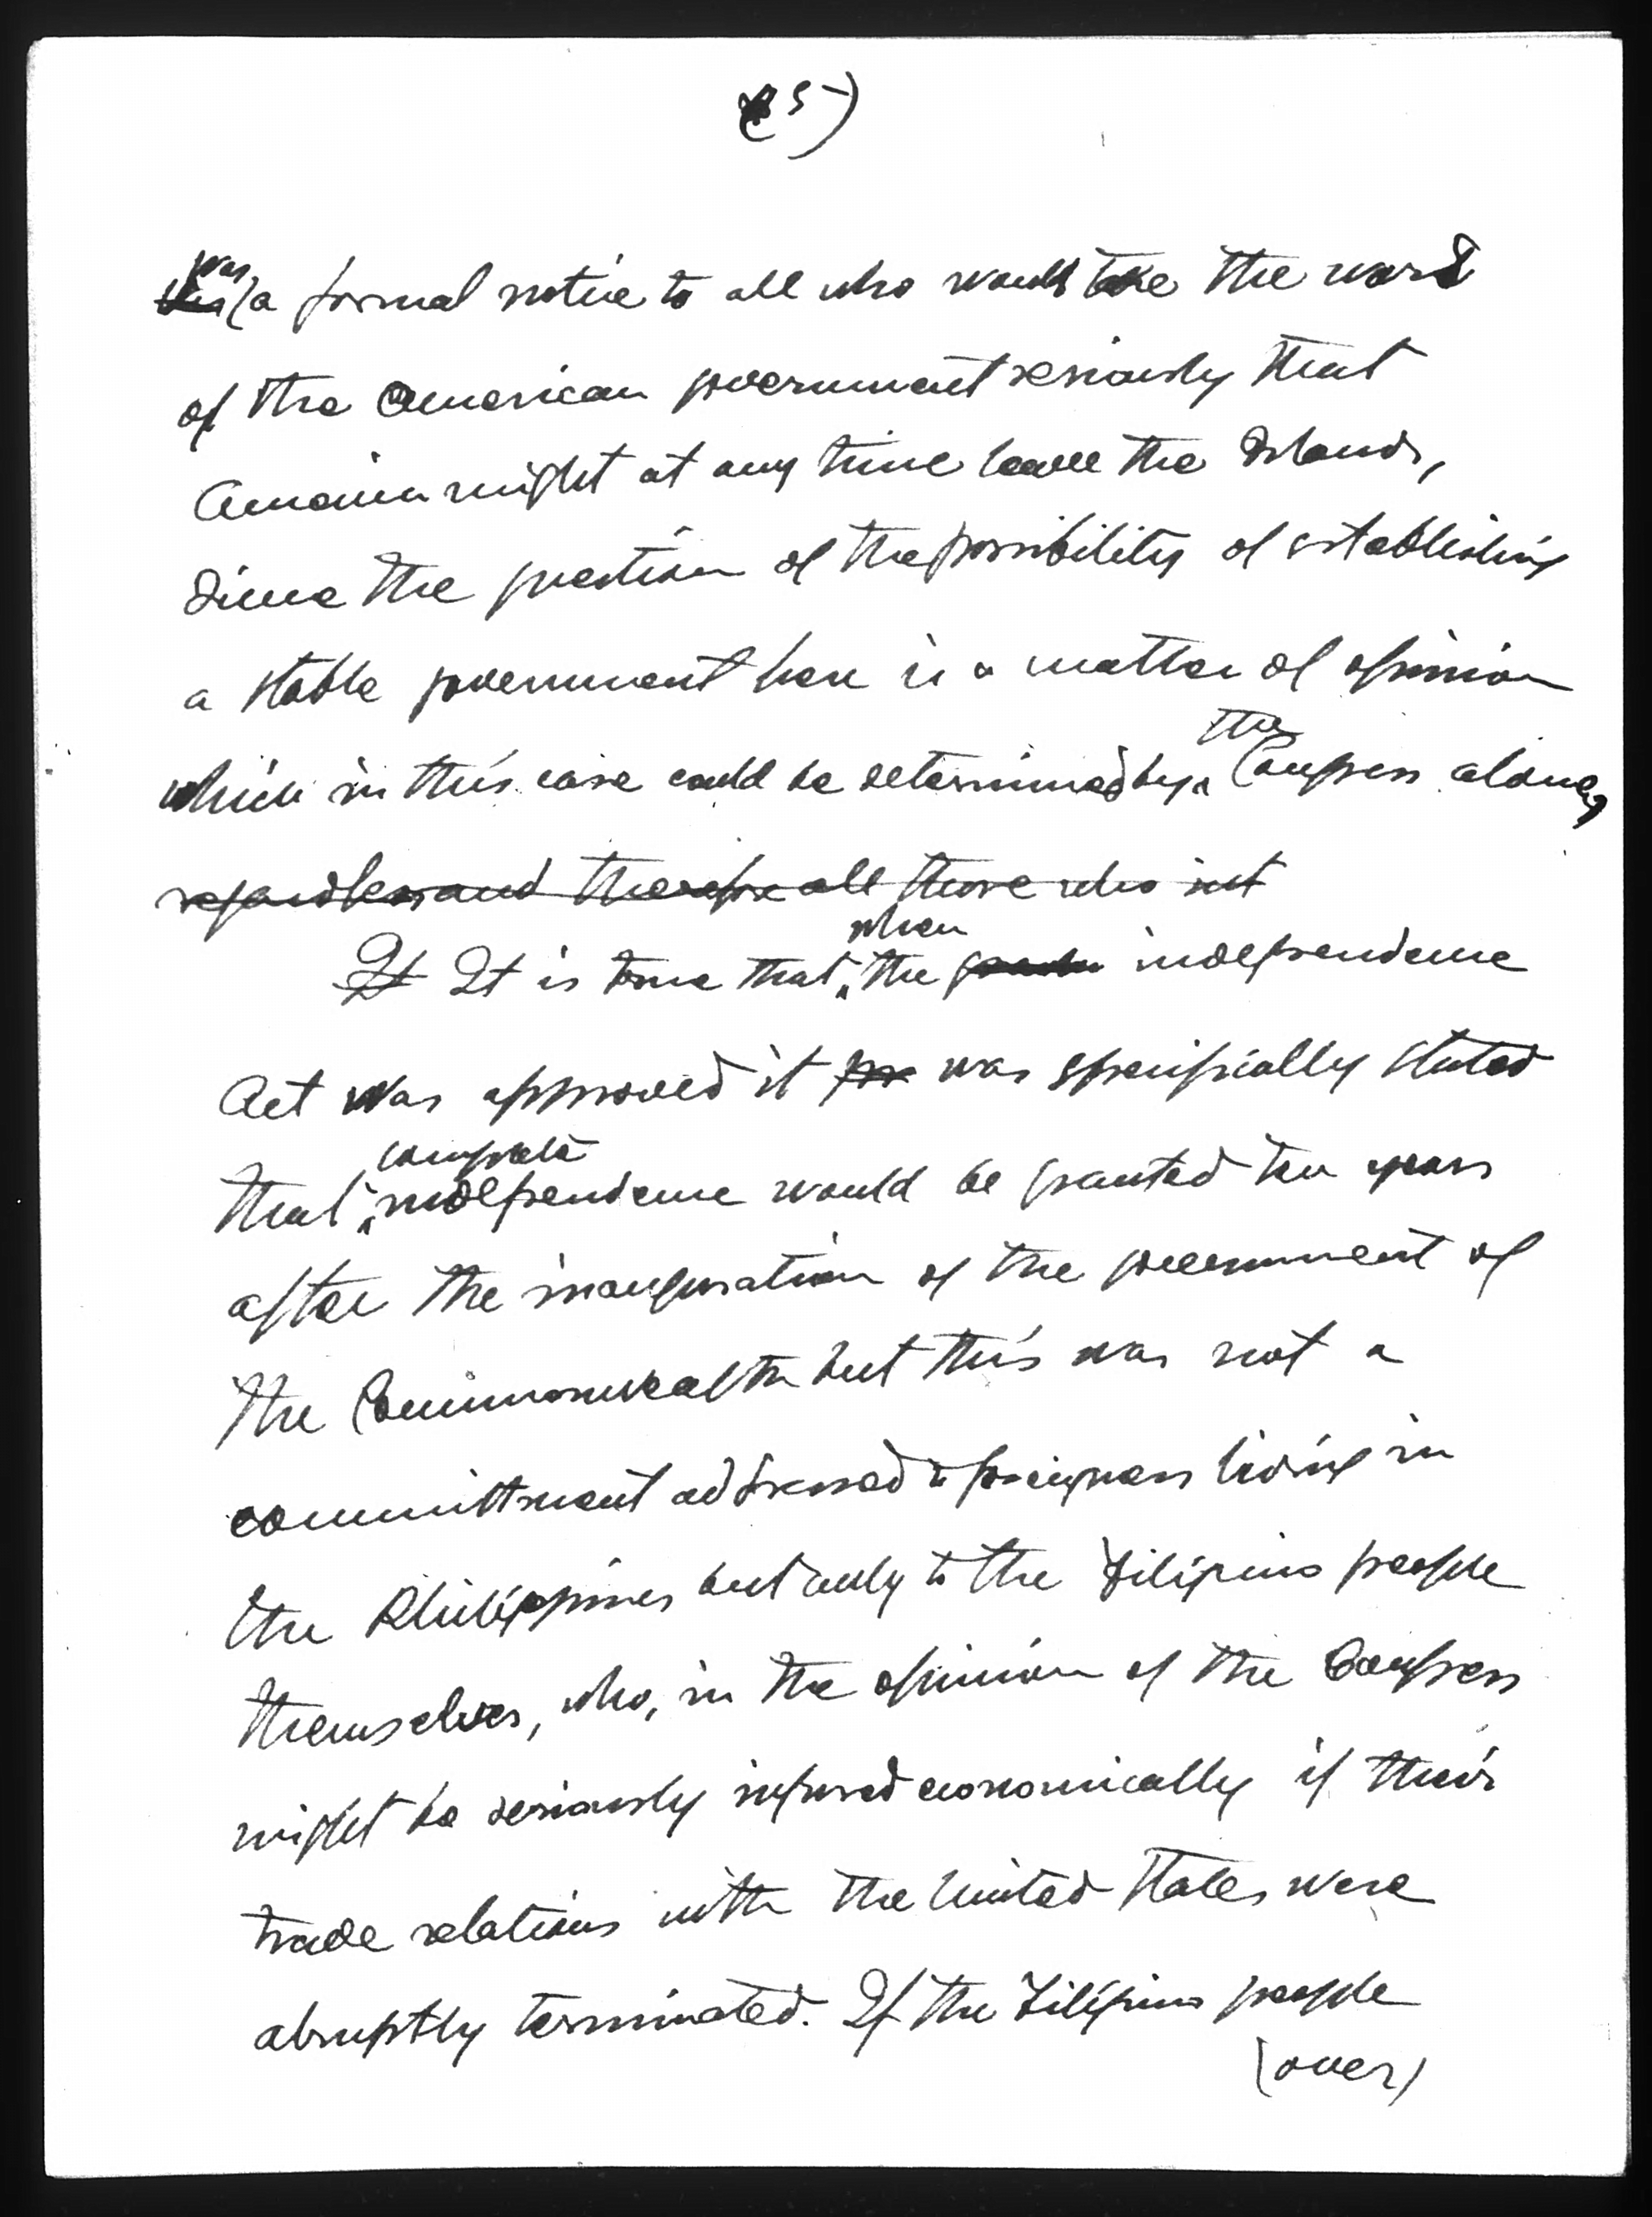 (5)
was
this a formal notice to all who would take the word
of the American government seriously that
America might at any time leave the Islands,
since the question of the possibility of establishing
a stable government here is a matter of opinion
the
which in this case could be determined by Congress alone,
regardless and therefore all those who inst
when
It It is true that the independence
Act was approved it was specifically stated
complete
that independence would be granted ten years
after the inauguration of the government of
the Commonwealth but this was not a
committment addressed to foreigners living in
the Philippines but only to the Filipino people
themselves, who, in the opinion of the Congress
might be seriously injured economically if their
trade relations with the United States were
abruptly terminated. If the Filipino people
(over)